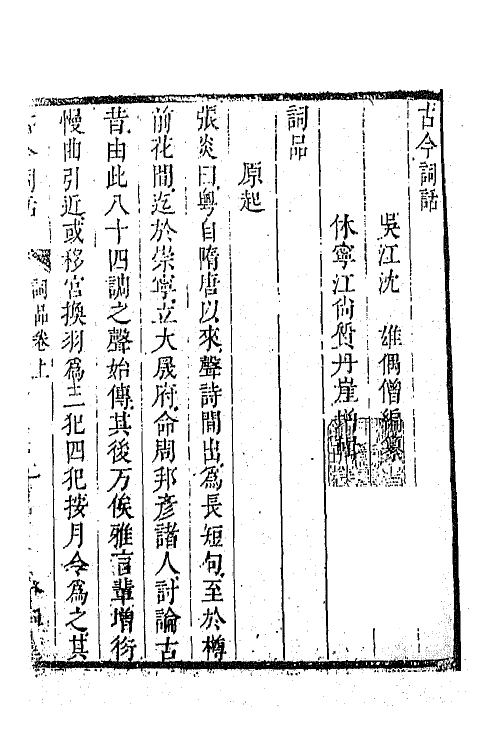 古今詞話
吳江沈 雄偶僧編纂
休寧江尙質丹崖增輯
詞品
原起
張炎曰粵自隋唐以來聲詩間出爲長短句至於樽
前花間迄於崇寧立大晟府命周邦彥諸人討論古
昔由此八十四調之聲始傳其後万俟雅言輩增衍
慢曲引近或移宮換羽爲三犯四犯按月令爲之其
古今詞話 詞品卷上